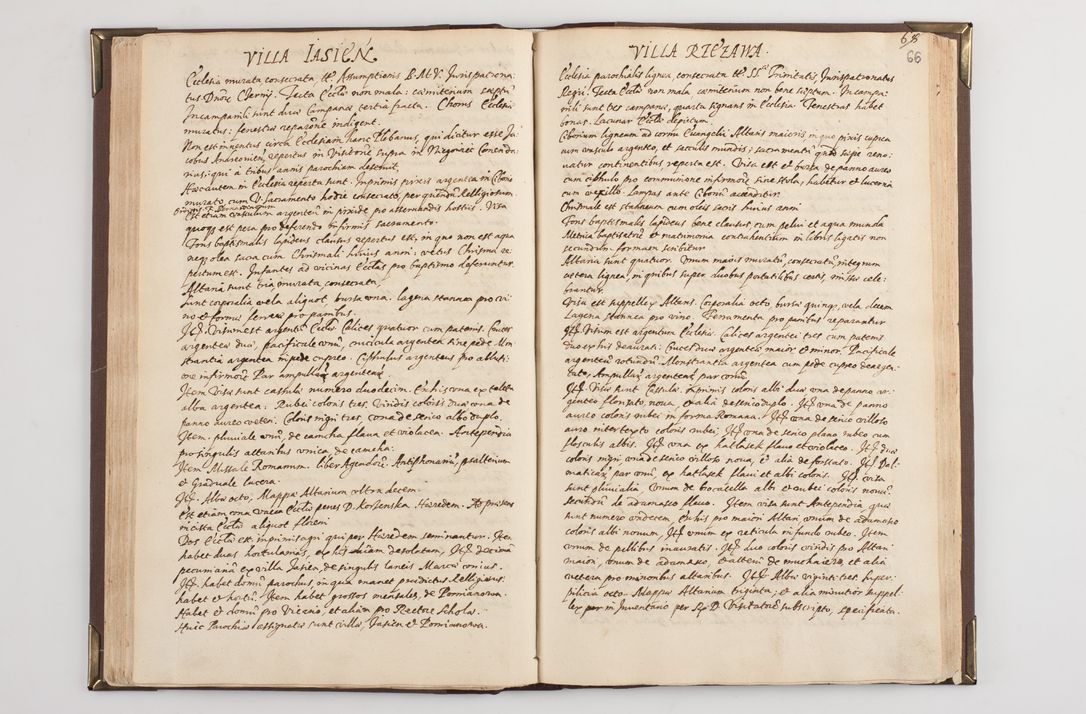 VILLA IASIEŃ
Ecclesia murata consecrata tt. Assumptionis B.M.V. Iurispatrona
tus Dnorū Czerny. Tecta Ecclīe non mala: cæmiterium septū
In campanili sunt duæ Campanæ tertia fracta. Chorus Ecclesiæ
muratus: fenestræ reparōne indigent.
Non est inventus circa Ecclesiam hanc Plebanus, qui dicitur esse Ja
cobus Andreonien, repertus in Visitōne supra in Commenda
rius: qui a tribus annis parochiam deseruit.
Hæc autem in Ecclesia reperta sunt. Inprimis pixis argentea in Ciborio
murato, cum V. Sacramento hodie consecrato, per quendā Relligiosum
Est etiam vasculum argenteū in pixide pro asservandis hostiis. Visa
quoq; est pera pro deferendo infirmis sacramento.
Fons baptismalis lapideus clausus repertus est, in quo non est aqua
neq; olea sacra cum Chrismali huius anni: vetus Chrisma re
pertum est. Infantes ad vicinas Ecclīas pro baptismo deferuntur.
Altaria sunt tria, murata, consecrata,
Sunt corporalia vela aliquot, bursa una. lagena stannea pro vi
no et forma ferrea pro panibus.
Itē. Visum est argentū Ecclīæ. Calices quatuor cum patenis. Cruces
argenteæ duæ, pacificale unū, crucicula argentea sine pede. Mon
strantia argentea in pede cupreo. Cyphulus argenteus pro abluti
one infirmorū. Par ampullarū argentearū.
Item Visæ sunt casulæ numero duodecim. Ex his una ex taleta
alba argentea. Rubei coloris tres, Viridis coloris duæ una de
panno aureo veteri. Coloris nigri tres, una de serico albo duplo.
Item. pluviale unū, de camcha flava et violacea. Antependia
pro singulis altaribus unica, de camcha.
Item Missale Romanum. liber Agendorū. Antiphonariū, psalterium
et Graduale lacera.
Itē. Albæ octo, Mappæ Altarium ultra decem.
Est etiam una vacca Ecclīæ penes D. Hæredem. Ad præsens
in cista Ecclīæ aliquot floreni
Dos Ecclīæ est inprimis agri qui per Hæredem seminantur. Item
habet duas hortulanias, ex his unam desolatam, Itē decimā
pecuniariā ex villa Jasien, de singulis laneis Marcæ unius.
Itē. habet domū parochus in qua manet prædictus Relligiosus.
habet et hortū. Item habet grossos mensales, de Porzianowa.
Habet et domū pro Vicario, et aliam pro Rectore Scholæ.
Huic Parochiæ assignatæ sunt villæ, Jasien et Porzianowa.
68
66
VILLA RZEZAWA.
Ecclesia parochialis lignea consecrata tt. SS.æ Trinitatis, Iurispatronatus
Regii. Tecta Ecclīæ non mala cœmiterium non bene septum. In campa
nili sunt tres campanæ, quarta signans in Ecclesia. Fenestras habet
bonas. Lacunar Ecclīæ depictum.
Ciborium ligneum ad cornu Evangelii Altaris maioris in quo pixis cuprea
cum vasculo argenteo, et sacculis mundis; sacramenta quæ sæpe reno:
vatur continentibus reperta est. Visa est et bursa de panno aureo
cum cyphulo pro communione infirmorū, sine stola; habetur et lucerna
cum vexillo. Lampas ante Ciboriū accenditur.
Chrismale est stanneum cum oleis sacris huius anni
Fons baptismalis lapideus bene clausus, cum pelvi et aqua munda
Metrica baptisatorū et matrimonia contrahentium in libris ligatis non
secundum formam scribitur
Altaria sunt quatuor. Unum maius muratū, consecratū, integrum
cetera lignea, in quibus super duobus portatilibus missæ cele:
brantur.
Visa est suppellex Altaris. Corporalia octo bursæ quinq;, vela decem
Lagena stannea pro vino. Ferramenta pro panibus reparantur
Itē. Visum est argentum Ecclesiæ. Calices argentei tres cum patenis
duo ex his deaurati. Cruces duæ argenteæ maior et minor. Pacificale
argenteū rotundū. Monstrantia argentea cum pede cupreo deaura:
tato. Ampullarū argentearū par unū.
Itē. Visæ sunt Casulæ. Inprimis coloris albi duæ una de panno ar:
genteo florisato, nova et alia de serico duplo. Itē una de panno
aureo coloris rubei in forma Romana. Itē una de serico villoso
auro intertexto coloris rubei. Itē una de serico plano rubeo cum
flosculis albis. Itē una ex kathasek flavo et violaceo. Itē duæ
coloris nigri una de serico villoso nova, et alia de forstato. Itē Dal:
maticarū par unū, ex kathasek flavi et albi coloris. Itē visa
sunt pluvialia, unum de bocatella albi et rubei coloris novū.
Secundū de adamasco flavo. Item visa sunt Antependia, quæ
sunt numero undecem, Ex his pro maiori Altari unum de adamasco
coloris albi novum, Itē unum ex reticula in fundo rubeo. Item
unum de pellibus inauratis. Itē duo coloris viridis pro Altari
maiori, unum de adamasco, et alterū de muchaiero, et alia
vetera pro minoribus altaribus. Itē. Albæ viginti tres super:
pilicia octo. Mappæ Altarium triginta, et alia minutior suppel
lex per in Inventario per R. D. Visitatorē subscripto, specificata.